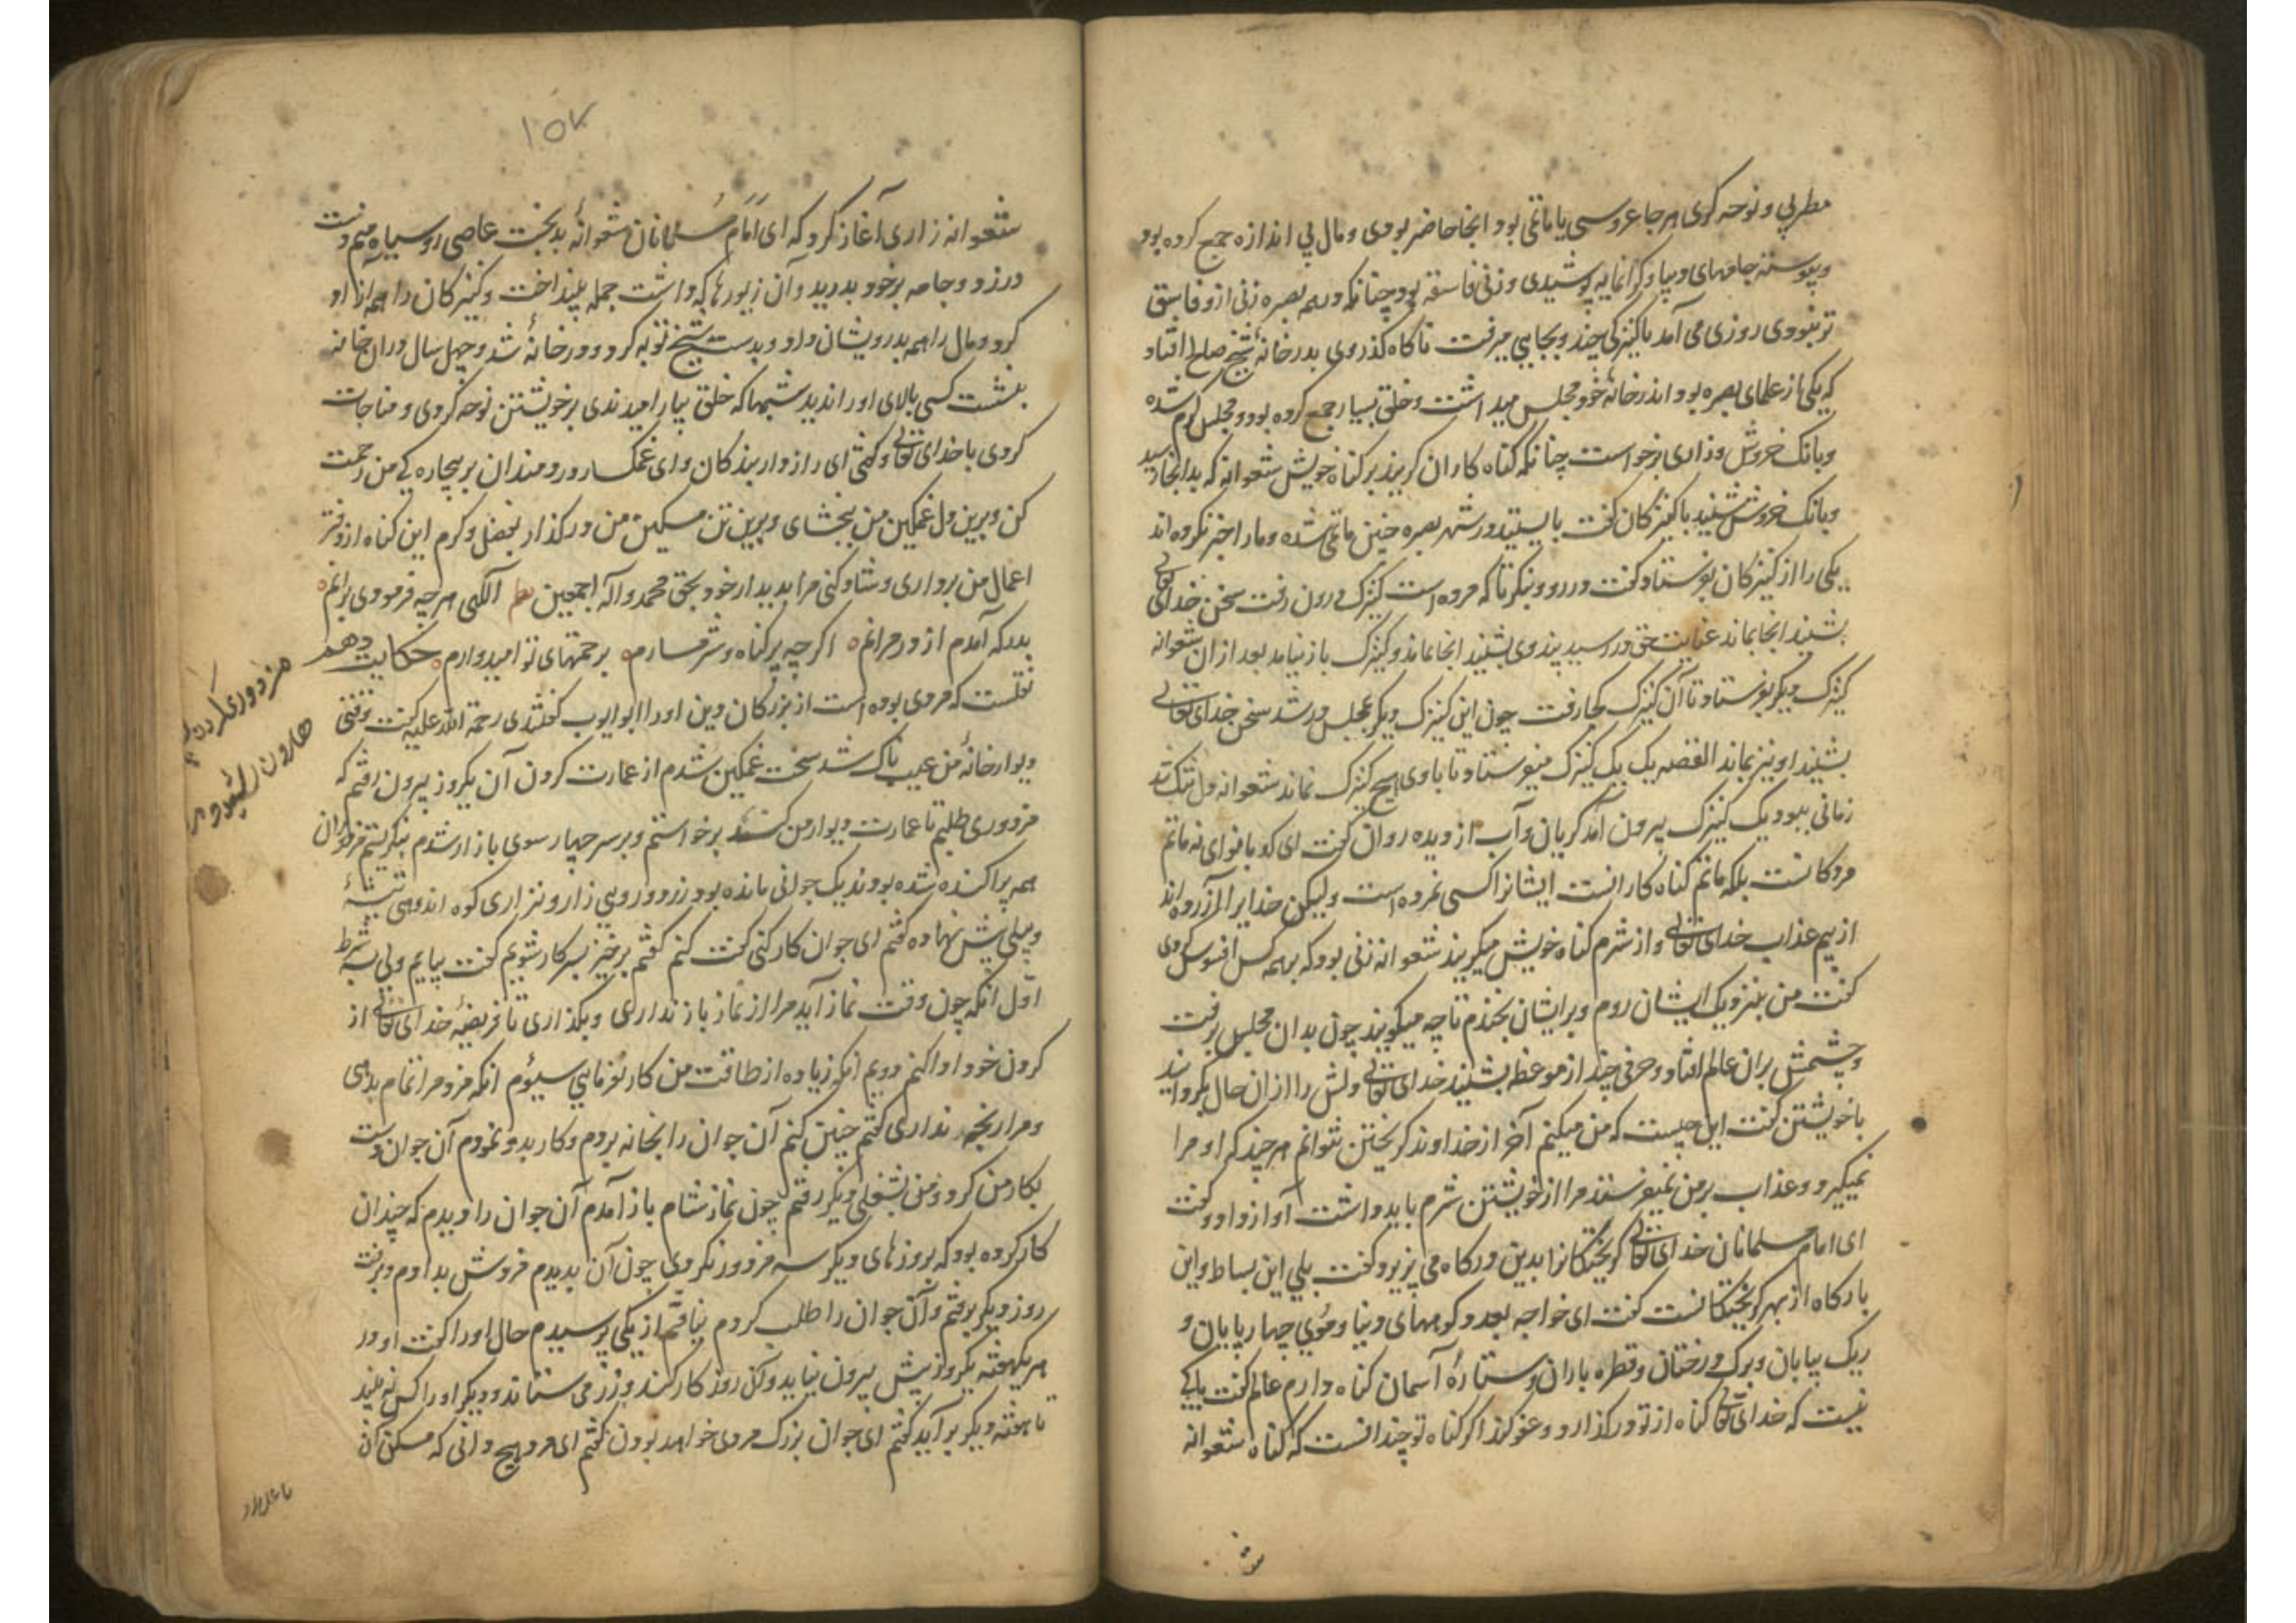 مطربی و نوحه کری هر جا عروسی یا ماتمی بود انجا حاضر بودی و مال بی اندازه جمع کرده بود
و پیوسته جامهای دیبا و کرانمایه پوشیدی و زنی فاسقه بود چنانکه در همه بصره زنی ازو فاسق
تر نبودی روزی می آمد با کنیزکی چند و بجایی میرفت ناکاه کذر وی بدر خانهٔ شیخ صالح افتاد
که یکی از علمای بصره بود اندر خانهٔ خود مجلس میداشت و خلق بسیار جمع کرده بود و مجلس کرم شده
و بانک خروش و زاری برخواست چنانکه کناه کاران کریند بر کناه خویش شعوانه که بدانجا رسید
و بانک خروش شنید با کنیزکان کفت بایستید در شهر بصره چنین ماتمی شده و مارا خبر نکرده اند
یکی را از کنیزکان بفرستاد و کفت در رو و بنکر تا که مرده است کنیزک درون رفت سخن خدای تعالی
بشنید انجا بماند عنایت حق در رسید پند وی بشنید انجا بماند و کنیزک باز نیامد بعد از ان شعوانه
کنیزک دیکر بفرستاد تا آن کنیزک کجا رفت چون این کنیزک دیکر بمجلس در شد سخن خدای تعالی
بشنید او نیز بماند القصه یک یک کنیزک میفرستاد تا با وی هیچ کنیزک نماند شعوانه دل تنک شد
زمانی ببود یک کنیزک بیرون آمد کریان و آب از دیده روان کفت ای کدبانو ای نه ماتم
مردکانست بلکه ماتم کناه کارانست ایشانرا کسی نمرده است ولیکن خدایرا آزرده اند
از بیم عذاب خدای تعالی و از شرم کناه خویش میکریند شعوانه زنی بود که بر همه کس افسوس کردی
کفت من بنزدیک ایشان روم و بر ایشان بخندم تا چه میکویند چون بدان مجلس برفت
و چشمش بران عالم افتاد و حرفی چند از موعظه بشنید خدای تعالی دلش را از ان حال بکردانید
با خویشتن کفت این چیست که من میکنم آخر از خداوند کریختن نتوانم هر چند که او مرا
نمیکیرد و عذاب بر من نمیفرستد مرا از خویشتن شرم باید داشت آواز داد و کفت
ای امام مسلمانان خدای تعالی کریختکانرا بدین درکاه می پزیرد کفت بلی این بساط و این
بارکاه از بهر کریختکانست کفت ای خواجه بعدد کوههای دنیا و موی چهار پایان و
ریک بیابان و برک درختان و قطره باران و ستارهٔ آسمان کناه دارم عالم کفت باکی
نیست که خدای تعالی کناه از تو در کذارد و عفو کند اکر کناه تو چندانست که کناه شعوانه
۱۵۷
شعوانه زاری آغاز کرد که ای امام مسلمانان شعوانهٔ بدبخت عاصی رو سیاه منم دست
در زد و جامه بر خود بدرید و آن زیورها که داشت جمله بینداخت و کنیزکان را همه آزاد
کرد و مال را همه بدرویشان داد و بدست شیخ توبه کرد و در خانهٔ شد و چهل سال دران خانه
بنشست کسی بالای او را ندید شبها که خلق بیارامیدندی بر خویشتن نوحه کردی و مناجات
کردی با خدای تعالی و کفتی ای رازدار بندکان و ای غمکسار دردمندان بر بیچاره کی من رحمت
کن و برین دل غمکین من ببخشای و برین تن مسکین من در کذار بفضل و کرم این کناه از دفتر
اعمال من برداری و شاد کنی مرا بدیدار خود بحق محمد و آله اجمعین الهی هر چه فرمودی برانم
بدرکه آمدم از در مرانم اکر چه پر کناه و شرمسارم برحمتهای تو امیدوارم حکایت دهم
نقلست که مردی بوده است از بزرکان دین او را ابو ایوب کفتندی رحمة الله علیه کفت وقتی
دیوار خانهٔ من عیب ناک شد سخت غمکین شدم از عمارت کردن آن یکروز بیرون رفتم که
مزدوری طلبم تا عمارت دیوار من کند برخواستم و بر سر چهار سوی بازار شدم بنکریستم مزدوران
همه پراکنده شده بودند یک جوانی مانده بود زرد روی زار و نزاری کوه اندوهی تیشهٔ
و بیلی پیش نهاده کفتم ای جوان کار کنی کفت کنم کفتم برخیز بسر کار شویم کفت بیایم ولی بسه شرط
اول انکه چون وقت نماز آید مرا از نماز باز نداری و بکذاری تا فریضهٔ خدای تعالی از
کردن خود ادا کنم دویم انکه زیاده از طاقت من کار نفرمایی سیوم انکه مزد مرا تمام بدهی
و مرا رنجه نداری کفتم چنین کنم آن جوان را بخانه بردم و کار بدو نمودم آن جوان دست
بکار من کرد و من بشغلی دیکر رفتم چون نماز شام باز آمدم آن جوان را دیدم که چندان
کار کرده بود که بروزهای دیکر سه مزدور نکردی چون آن بدیدم مزدش بدادم و برفت
روز دیکر برفتم و آن جوان را طلب کردم نیافتم از یکی پرسیدم حال او را کفت او در
هر یکهفته یکروز بیش بیرون نیاید و یک روز کار کند و زر می ستاند و دیکر او را کس نه بیند
تا هفته دیکر بر آید کفتم ای جوان بزرک مردی خواهد بودن کفتم ای مرد هیچ دانی که مسکن آن
مزدوری کردن
هارون الرشید